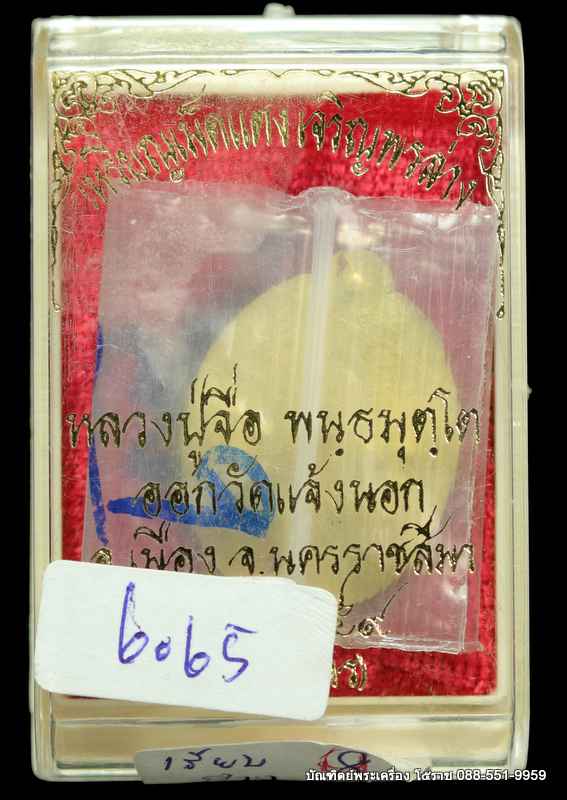 เหรียญเม็ดแตง เจริญพรล่าง
หลวงปู่จื่อ พนฺธมุตฺโต
ออกวัดแจ้งนอก
อ.เมือง จ.นครราชสีมา
๕๙
6065
เรียบ
บัณฑิตย์พระเครื่อง โคราช 088-551-9959